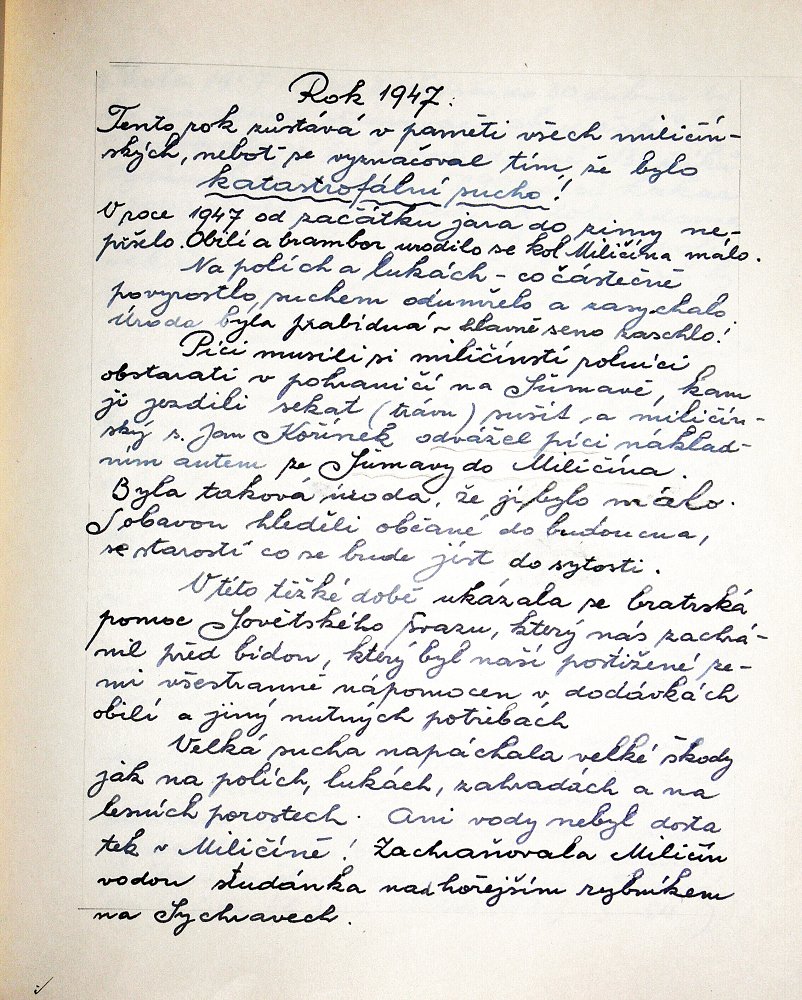 Rok 1947.
Tento rok zůstává v paměti všech miličín-
ských, neboť se vyznačoval tím, že bylo
katastrofální sucho!
V roce 1947 od začátku jara do zimy ne-
pršelo. Obilí a brambor urodilo se kol Miličína málo.
Na polích a lukách - co částečně
povyrostlo, suchem odumřelo a zasychalo.
Úroda byla prabídná - hlavně seno zaschlo!
Píci musili si miličínští rolníci
obstarati v pohraničí na Šumavě, kam
ji jezdili sekat (trávu) sušit, a miličín-
ský s. Jan Kořínek odvážel píci náklad-
ním autem ze Šumavy do Miličína.
Byla taková úroda, že jí bylo málo.
S obavou hleděli občané do budoucna,
se starostí co se bude jíst do sytosti.
V této těžké době ukázala se bratrská
pomoc Sovětského svazu, který nás zachrá-
nil před bídou, který byl naší postižené ze-
mi všestranně nápomocen v dodávkách
obilí a jiný nutných potřebách
Velká sucha napáchala velké škody
jak na polích, lukách, zahradách a na
lesních porostech. Ani vody nebyl dosta
tek v Miličíně! Zachraňovala Miličín
vodou studánka nad hořejším rybníkem
na Sychravech.